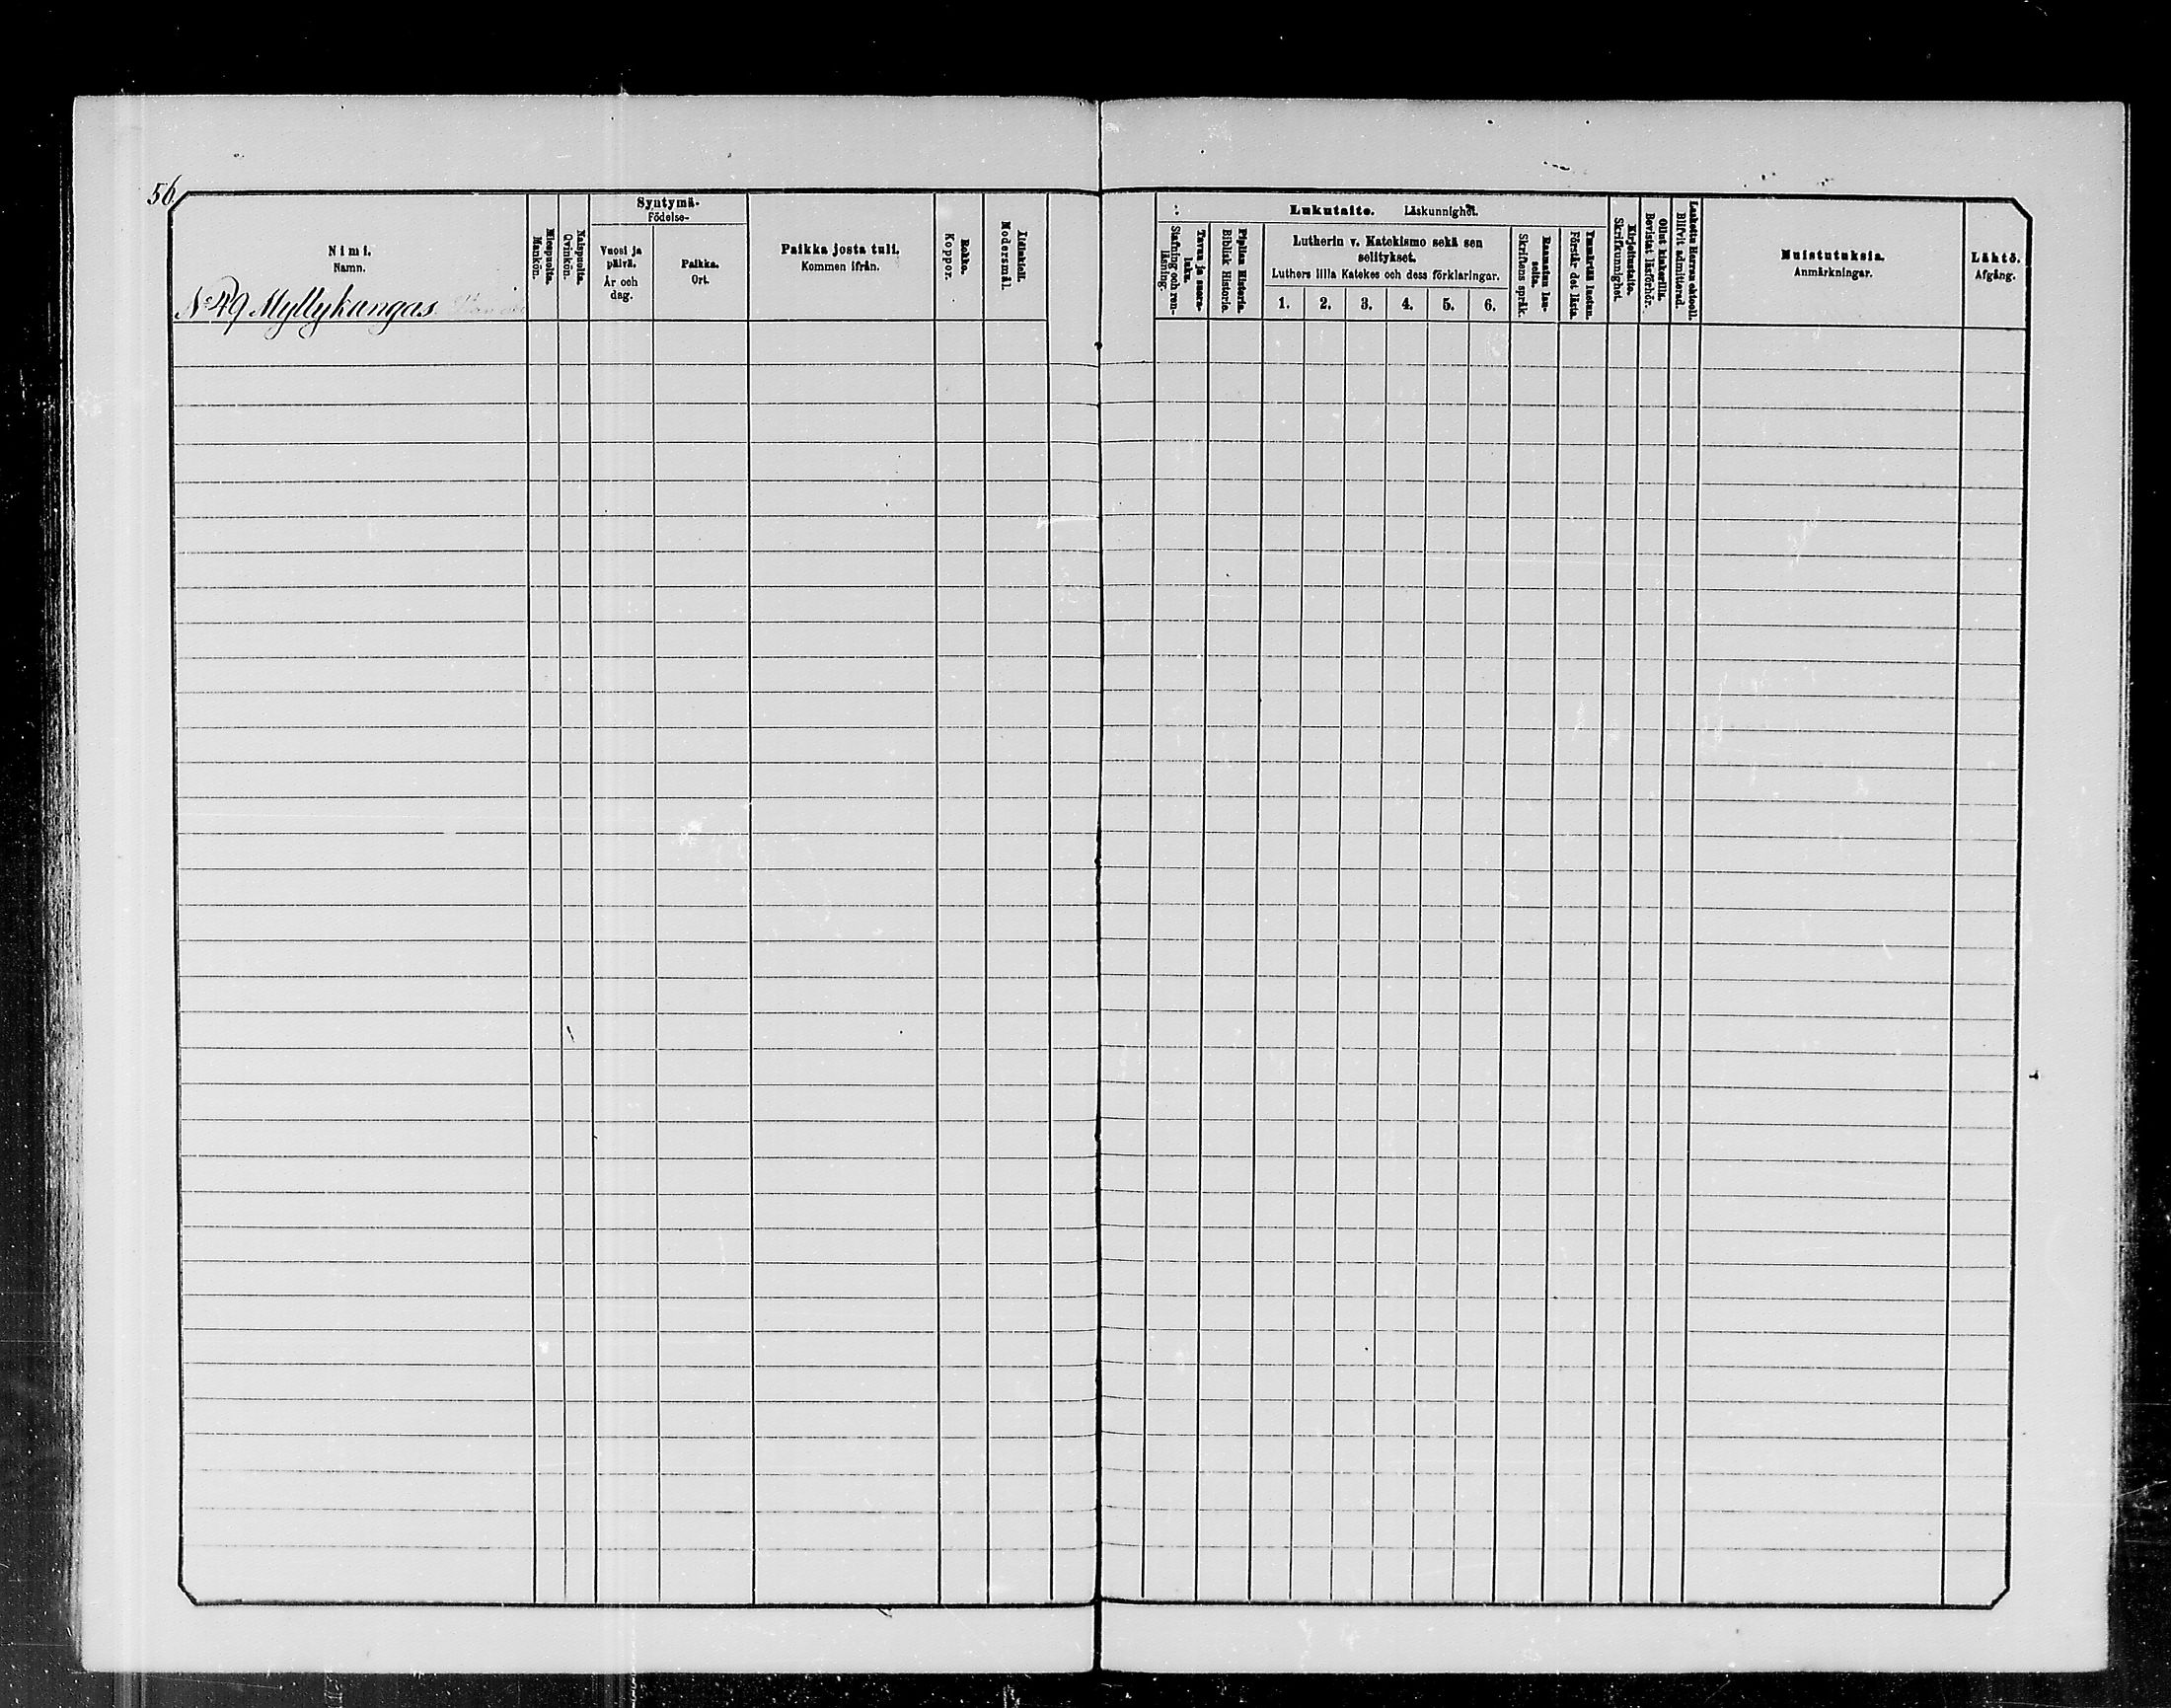 56
Nimi.
Namn.
Miespuolia.
Mankön.
Naispuolia.
Qvinkön.
Syntymä-
Födelse-
Vuosi ja
päivä.
År och
dag.
Paikka.
Ort.
Paikka josta tuli.
Kommen ifrån.
Rokko.
Koppor.
Äidinkieli.
Modersmål.
No 49 Myllykangas
Lukutaito. Läskunnighet.
Tavuu ja suora-
luku.
Stafning och ren-
läsning.
Piplian Historia.
Biblisk Historia.
Lutherin v. Katekismo sekä sen
selitykset.
Luthers lilla Katekes och dess förklaringar.
1. 2. 3. 4. 5. 6.
Raamatun lau-
seita.
Skriftens språk.
Ymmärtää luetun.
Förstår det lästa.
Kirjoitustaito.
Skrifkunnighet.
Ollut kinkerillä.
Bevistat läsförhör.
Laskettu Herran ehtooll.
Blifvit admitterad.
Muistutuksia.
Anmärkningar.
Lähtö.
Afgång.